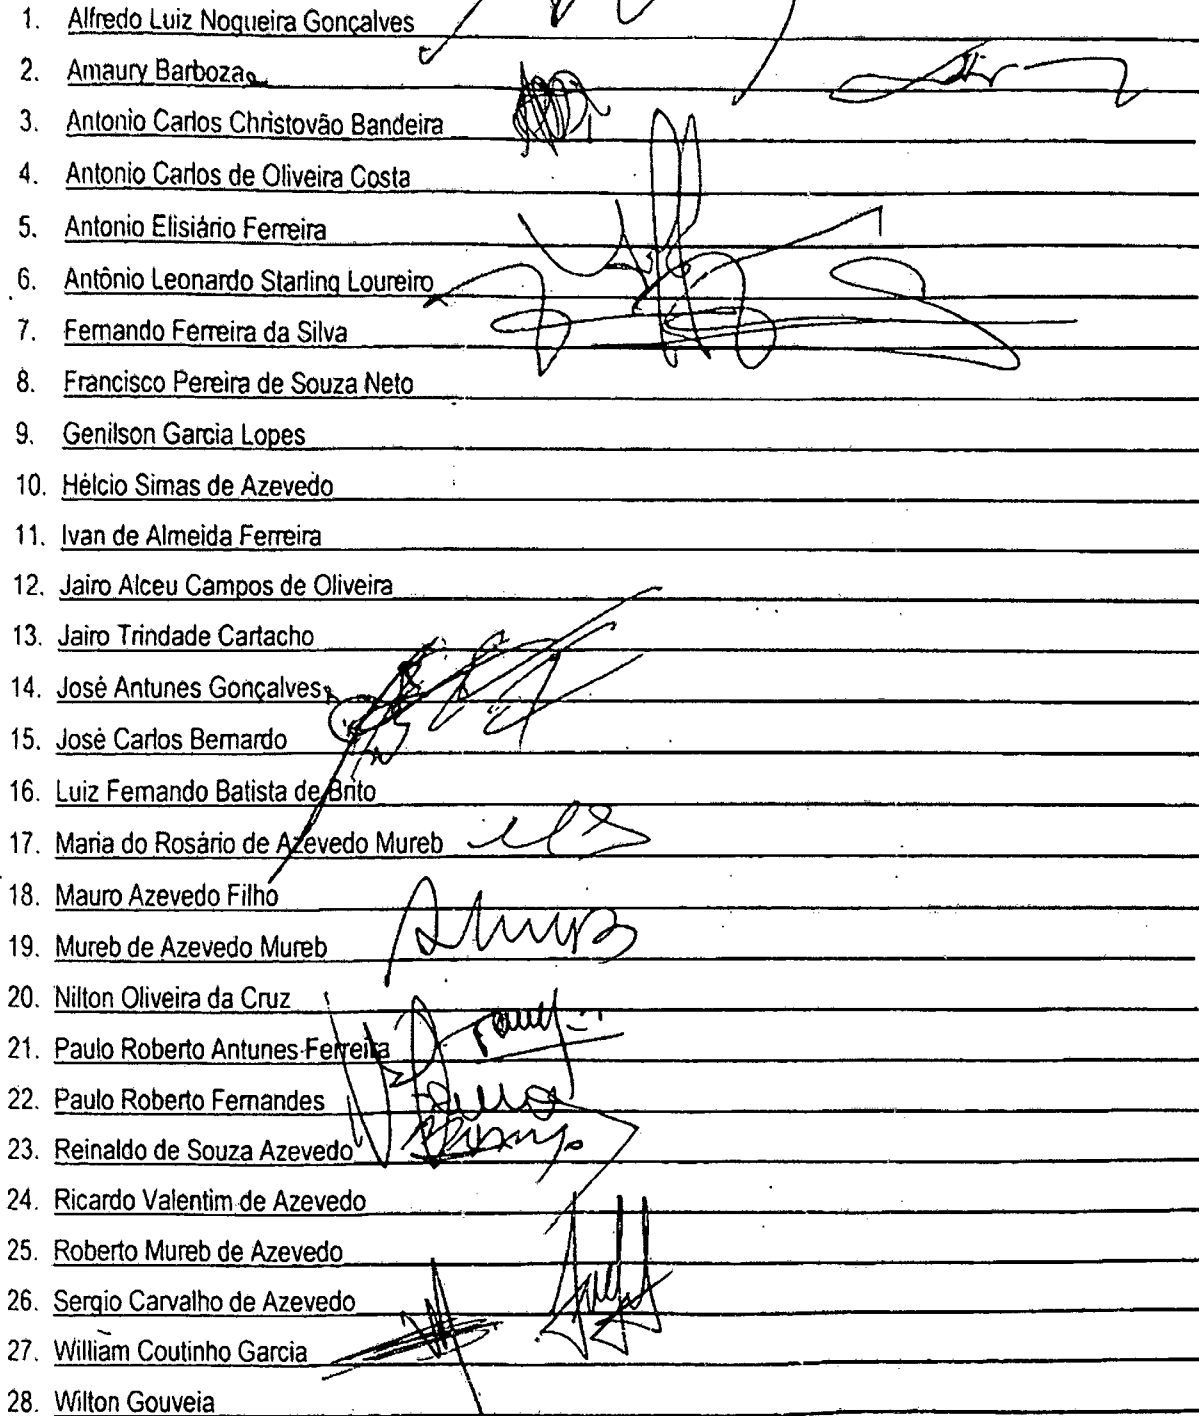 1. Alfredo Luiz Nogueira Gonçalves
2. Amaury Barboza
3. Antonio Carlos Christovão Bandeira
4. Antonio Carlos de Oliveira Costa
5. Antonio Elisiário Ferreira
6. Antônio Leonardo Starling Loureiro
7. Fernando Ferreira da Silva
8. Francisco Pereira de Souza Neto
9. Genilson Garcia Lopes
10. Hélcio Simas de Azevedo
11. Ivan de Almeida Ferreira
12. Jairo Alceu Campos de Oliveira
13. Jairo Trindade Cartacho
14. José Antunes Gonçalves
15. José Carlos Bernardo
16. Luiz Fernando Batista de Brito
17. Maria do Rosário de Azevedo Mureb
18. Mauro Azevedo Filho
19. Mureb de Azevedo Mureb
20. Nilton Oliveira da Cruz
21. Paulo Roberto Antunes Ferreira
22. Paulo Roberto Fernandes
23. Reinaldo de Souza Azevedo
24. Ricardo Valentim de Azevedo
25. Roberto Mureb de Azevedo
26. Sergio Carvalho de Azevedo
27. William Coutinho Garcia
28. Wilton Gouveia